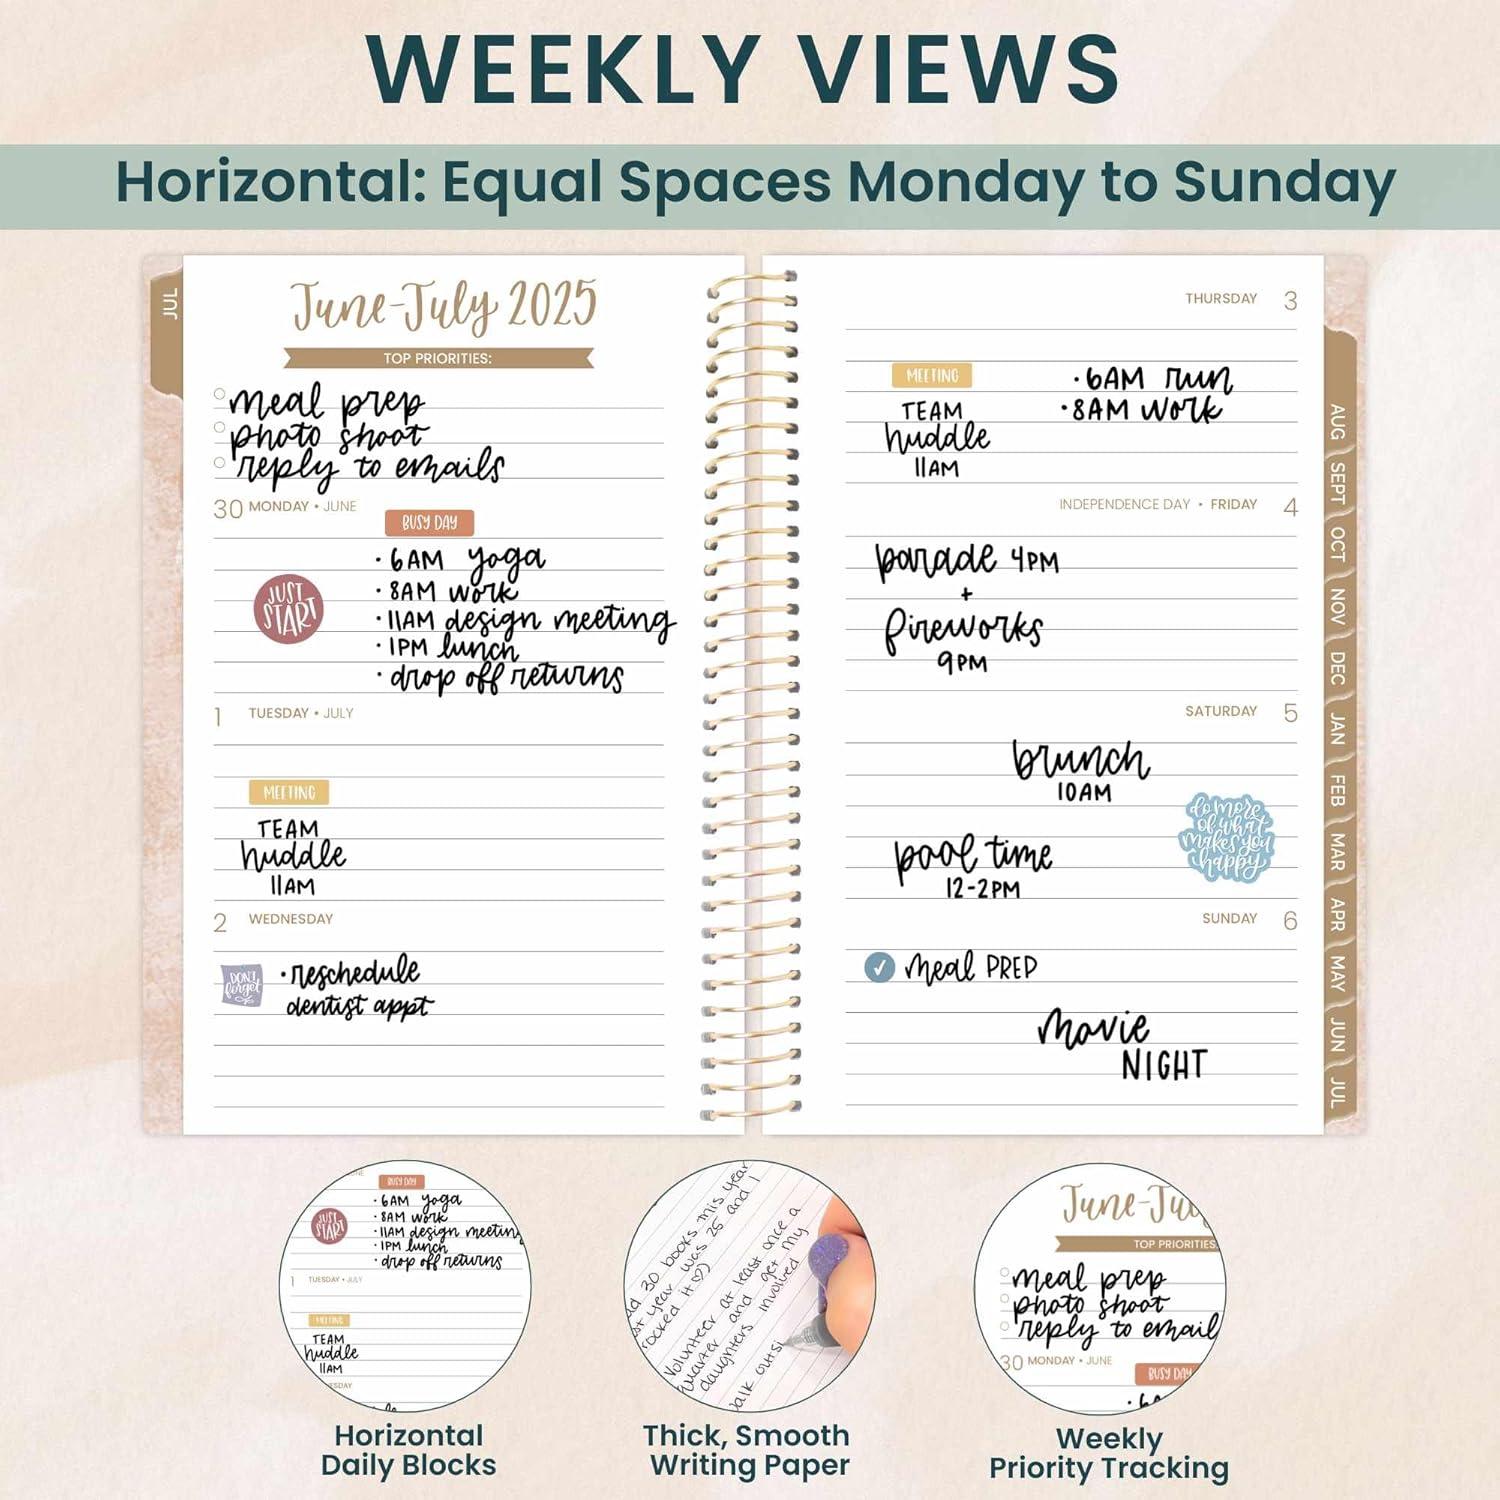 WEEKLY VIEWS
Horizontal: Equal Spaces Monday to Sunday
JUL
June-July 2025
TOP PRIORITIES:
meal prep
photo shoot
reply to emails
30 MONDAY • JUNE
BUSY DAY
JUST
START
• 6AM yoga
• 8AM work
• 11AM design meeting
• 1PM lunch
• drop off returns
1 TUESDAY • JULY
MEETING
TEAM
huddle
11AM
2 WEDNESDAY
DON'T
forget
• reschedule
dentist appt
THURSDAY 3
MEETING
TEAM
huddle
11AM
• 6AM run
• 8AM work
INDEPENDENCE DAY • FRIDAY 4
parade 4PM
+
fireworks
9PM
SATURDAY 5
brunch
10AM
pool time
12-2PM
do more
of what
makes you
happy
SUNDAY 6
meal PREP
movie
NIGHT
AUG
SEPT
OCT
NOV
DEC
JAN
FEB
MAR
APR
MAY
JUN
JUL
BUSY DAY
JUST
START
• 6AM yoga
• 8AM work
• 11AM design meeting
• 1PM lunch
• drop off returns
1 TUESDAY • JULY
MEETING
TEAM
huddle
11AM
Horizontal
Daily Blocks
30 books this year
year was 25 and I
rocked it
Volunteer at least once a
quarter and get my
daughters involved
Thick, Smooth
Writing Paper
June-Ju
TOP PRIORITIES
meal prep
photo shoot
reply to email
30 MONDAY • JUNE
BUSY DAY
Weekly
Priority Tracking